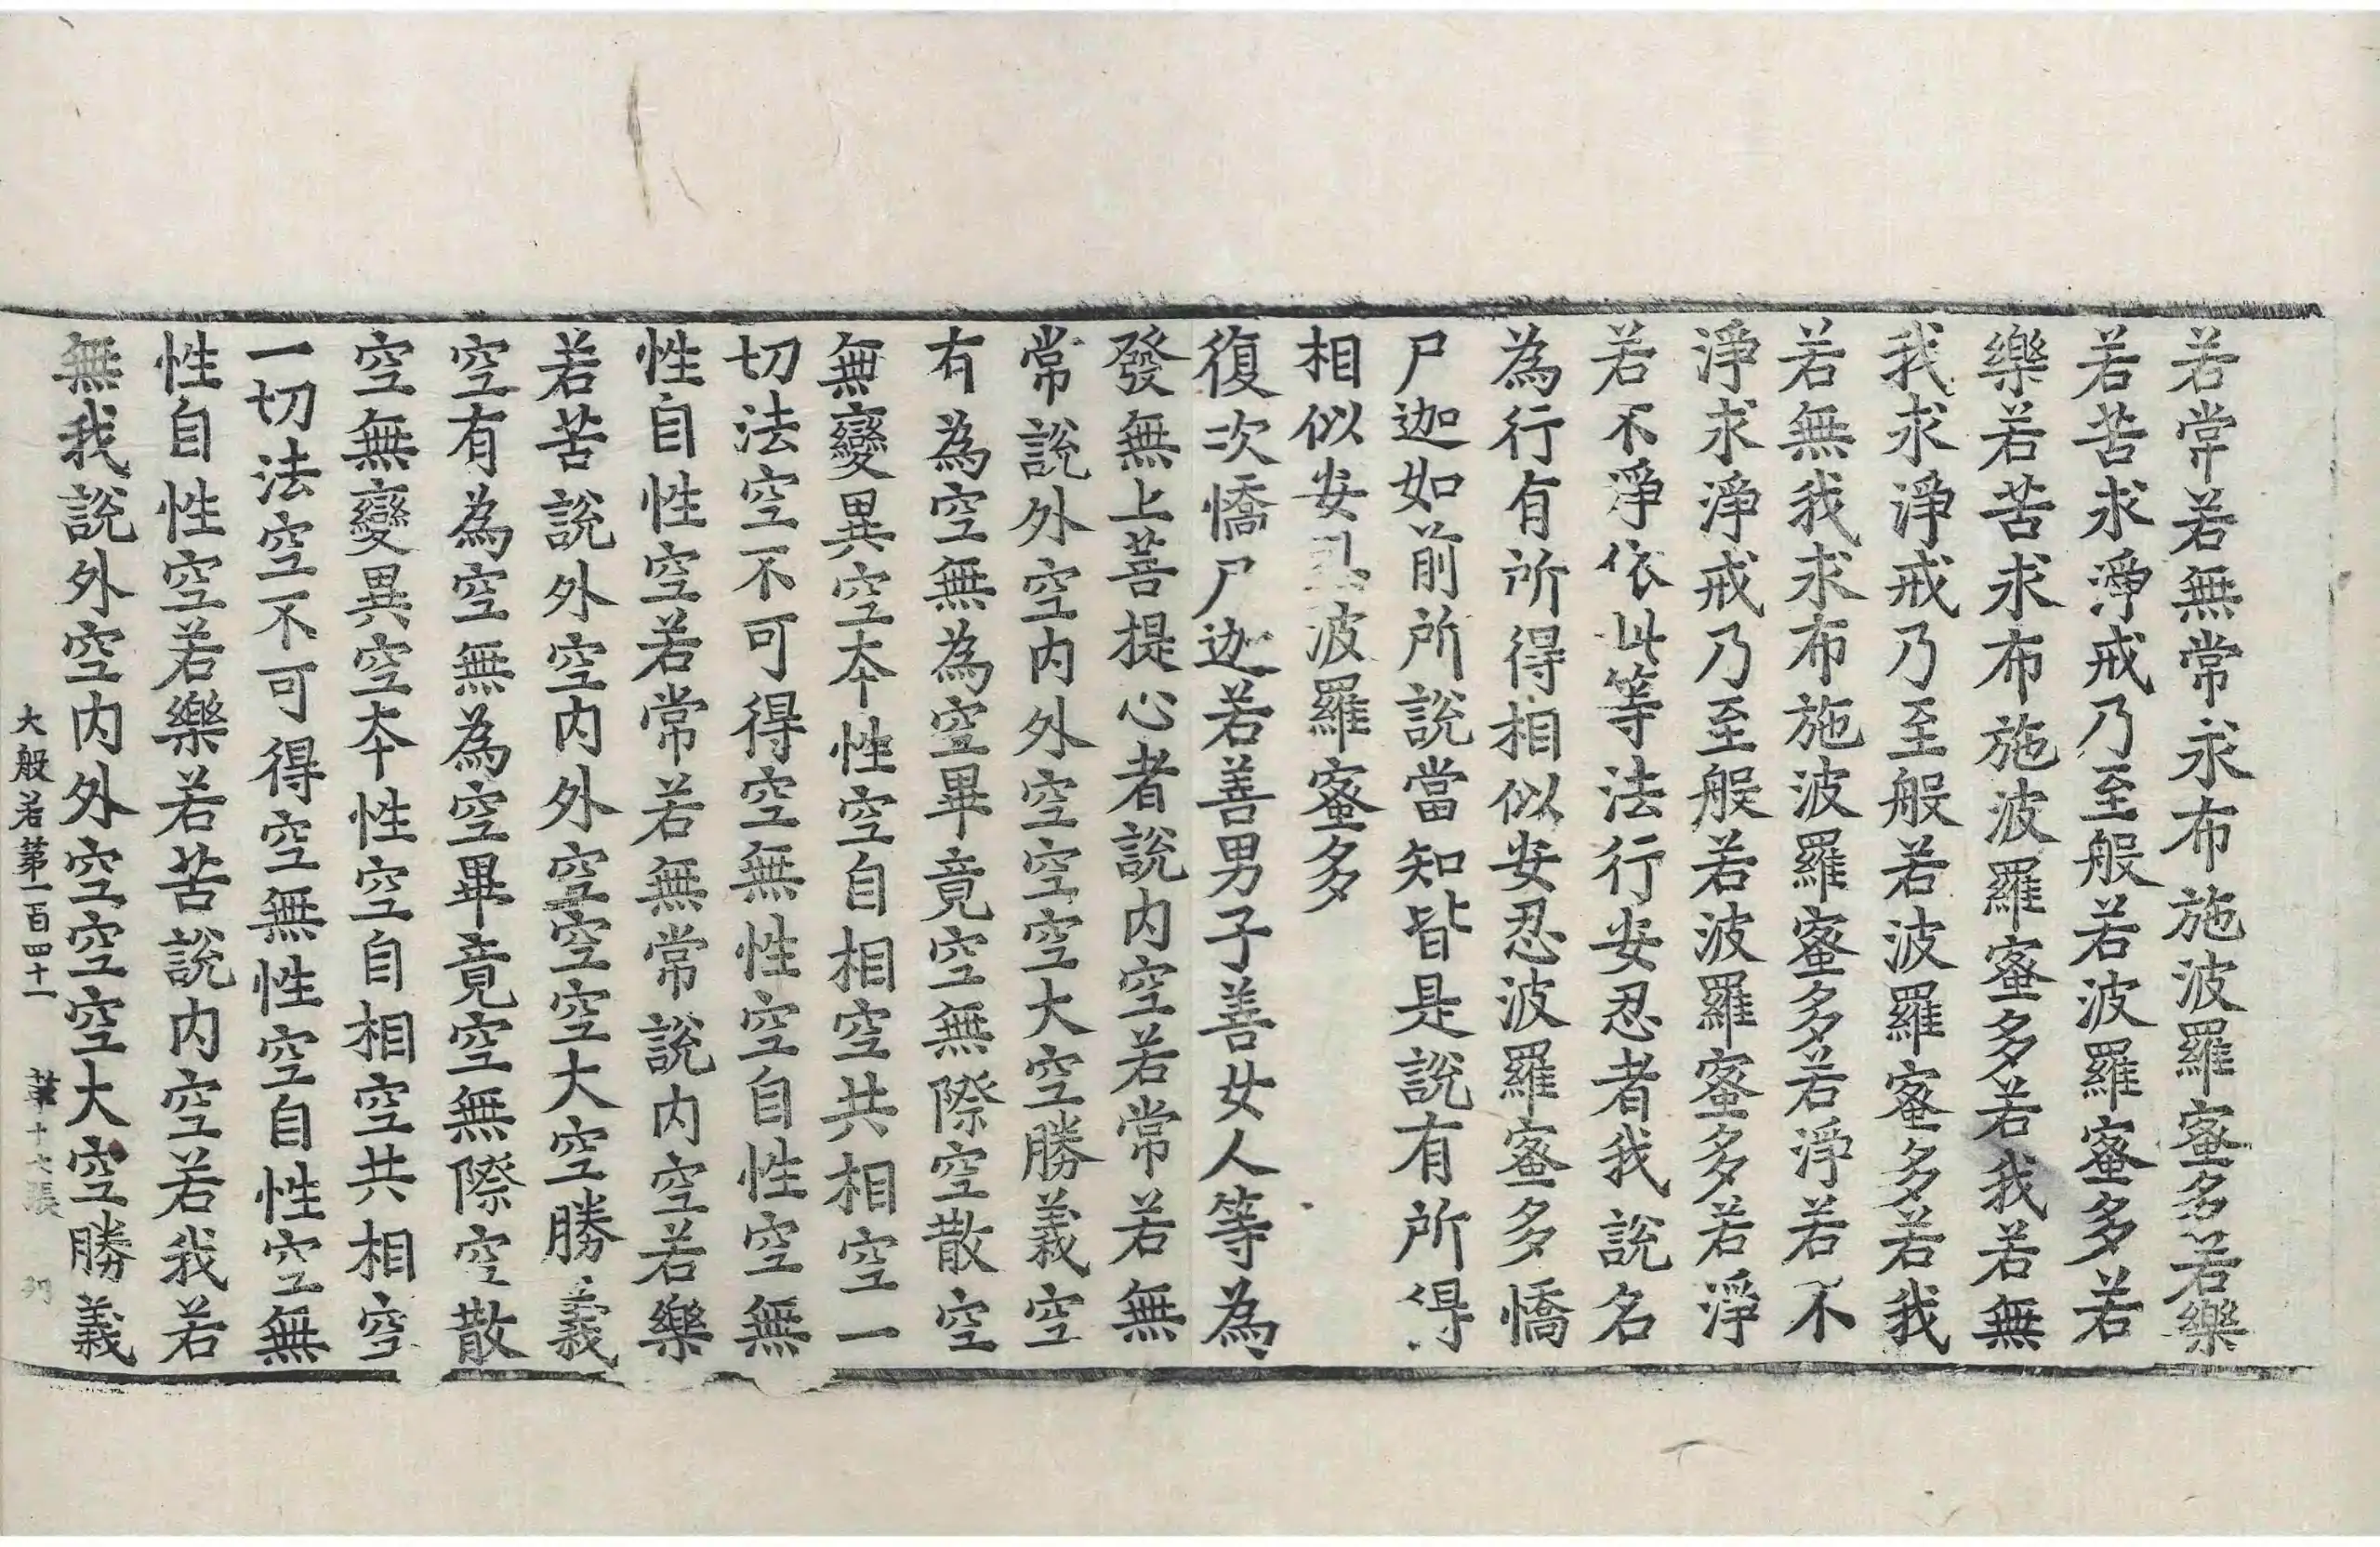 若常若無常求布施波羅蜜多若樂
若苦求淨戒乃至般若波羅蜜多若
樂若苦求布施波羅蜜多若我若無
我求淨戒乃至般若波羅蜜多若我
若無我求布施波羅蜜多若淨若不
淨求淨戒乃至般若波羅蜜多若淨
若不淨依此等法行安忍者我說名
為行有所得相似安忍波羅蜜多憍
尸迦如前所說當知皆是說有所得
相似安忍波羅蜜多
復次憍尸迦若善男子善女人等為
發無上菩提心者說内空若常若無
常說外空内外空空空大空勝義空
有為空無為空畢竟空無際空散空
無變異空本性空自相空共相空一
切法空不可得空無性空自性空無
性自性空若常若無常說内空若樂
若苦說外空内外空空空大空勝義
空有為空無為空畢竟空無際空散
空無變異空本性空自相空共相空
一切法空不可得空無性空自性空無
性自性空若樂若苦說内空若我若
無我說外空内外空空空大空勝義
大般若第一百四十一 第十六張 列